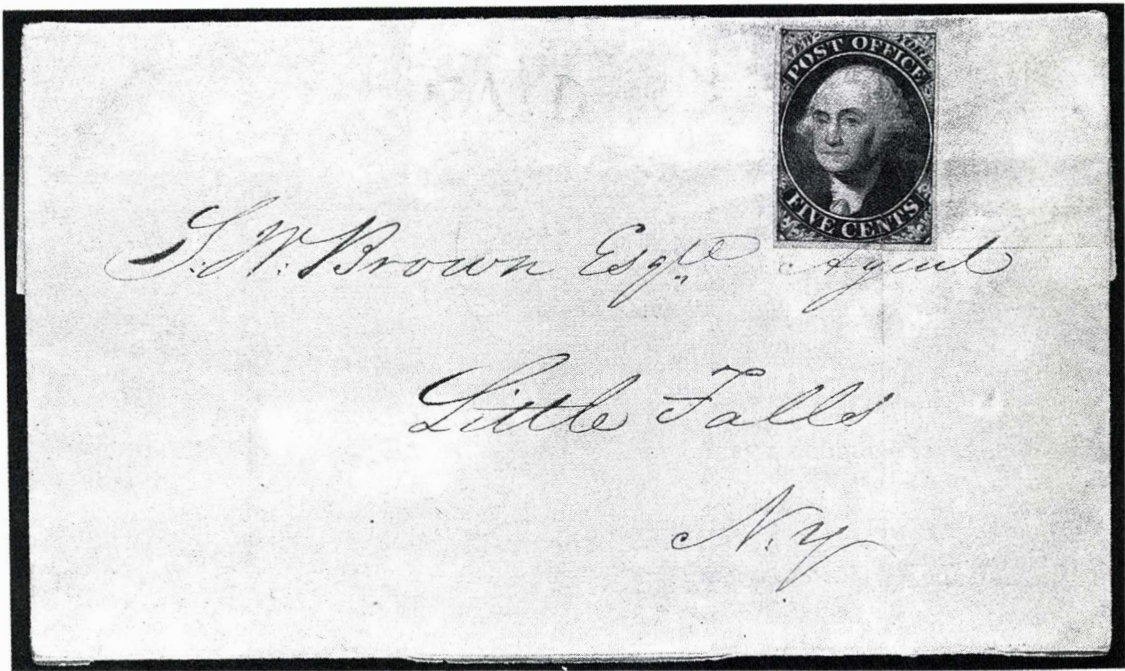 NEW YORK
POST OFFICE
FIVE CENTS
S. W. Brown Esqre Agent
Little Falls
N.y